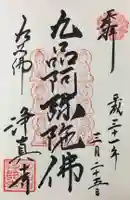 奉拝
平成三十年
三月二十五日
九品阿弥陀佛
九品佛
浄真寺